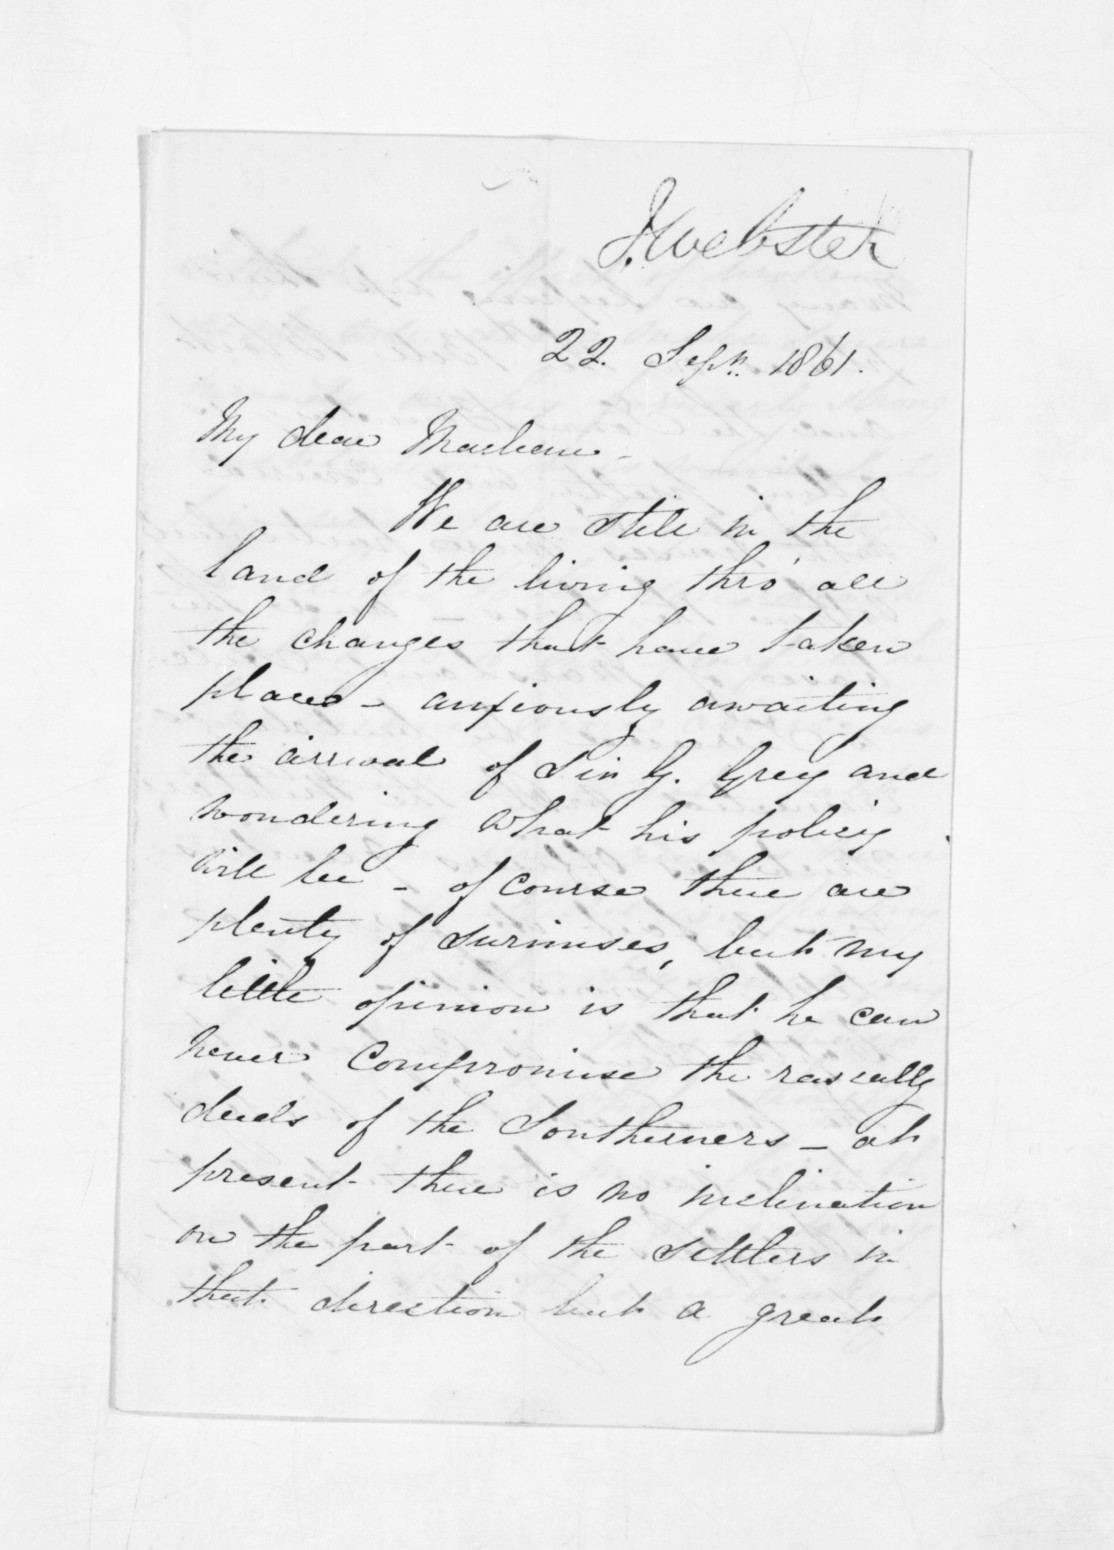 J. Webster
22. Sepr. 1861.
My dear Maclean -
We are still in the
land of the living thro' all
the changes that have taken
place - anxiously awaiting
the arrival of Sir G. Grey and
wondering what his policy
will be - of course there are
plenty of surmises, but my
little opinion is that he can
never compromise the rascally
deeds of the Southerners - at
present there is no inclination
on the part of the settlers in
that direction but a great